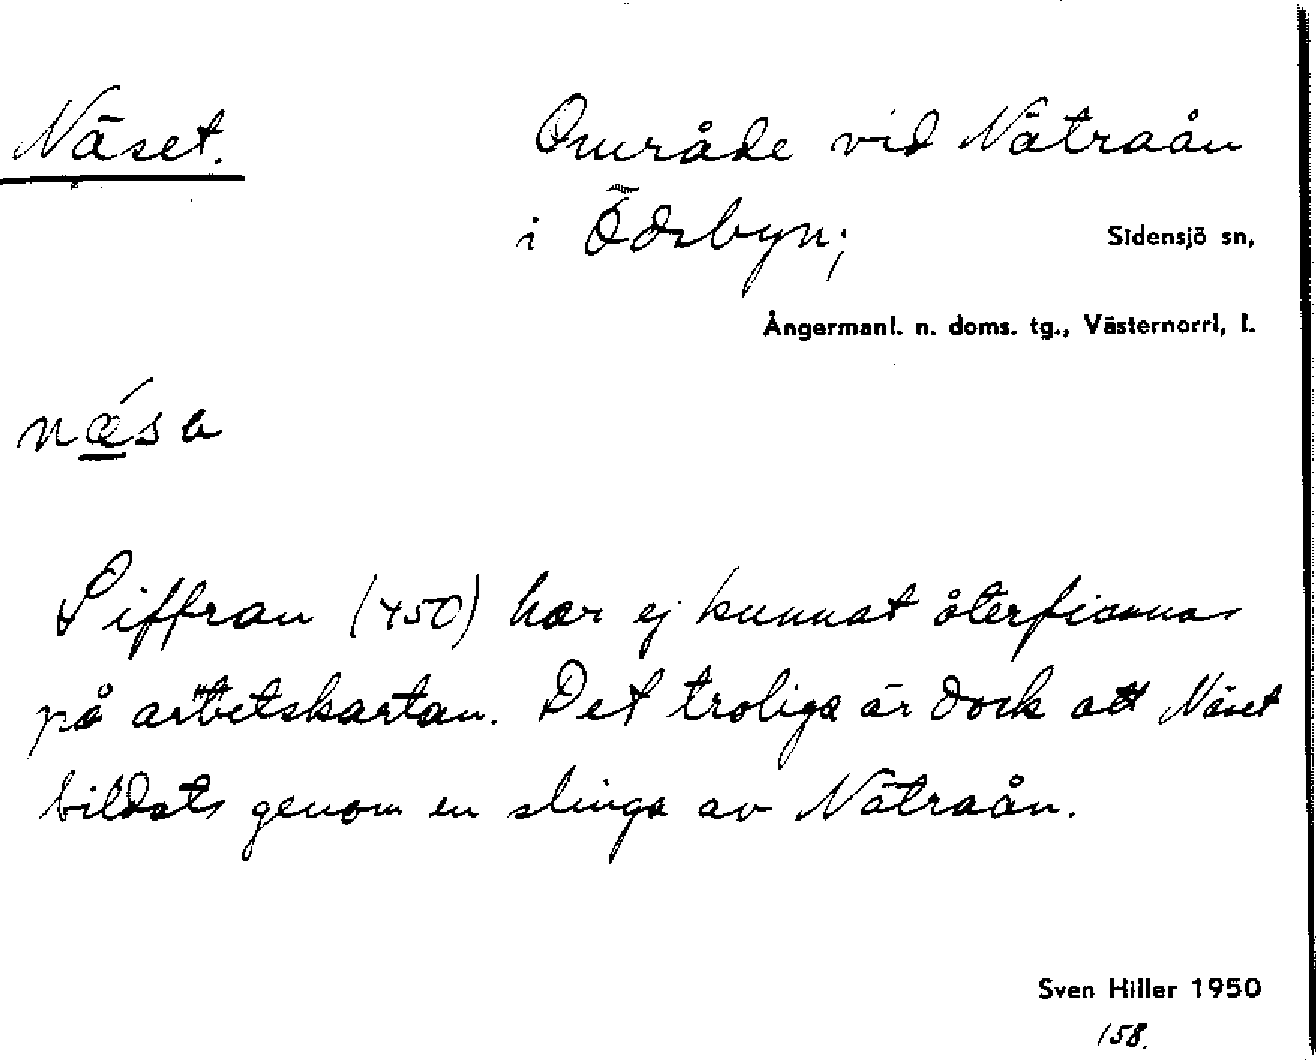 Näset.
Område vid Nätraån
i Ödsbyn;
Sidensjö sn,
Ångermanl. n. doms. tg., Västernorrl, l.
næ´sa
Siffran (450) har ej kunnat återfinnas
på arbetskartan. Det troliga är dock att Näset
bildats genom en slinga av Nätraån.
Sven Hiller 1950
158.